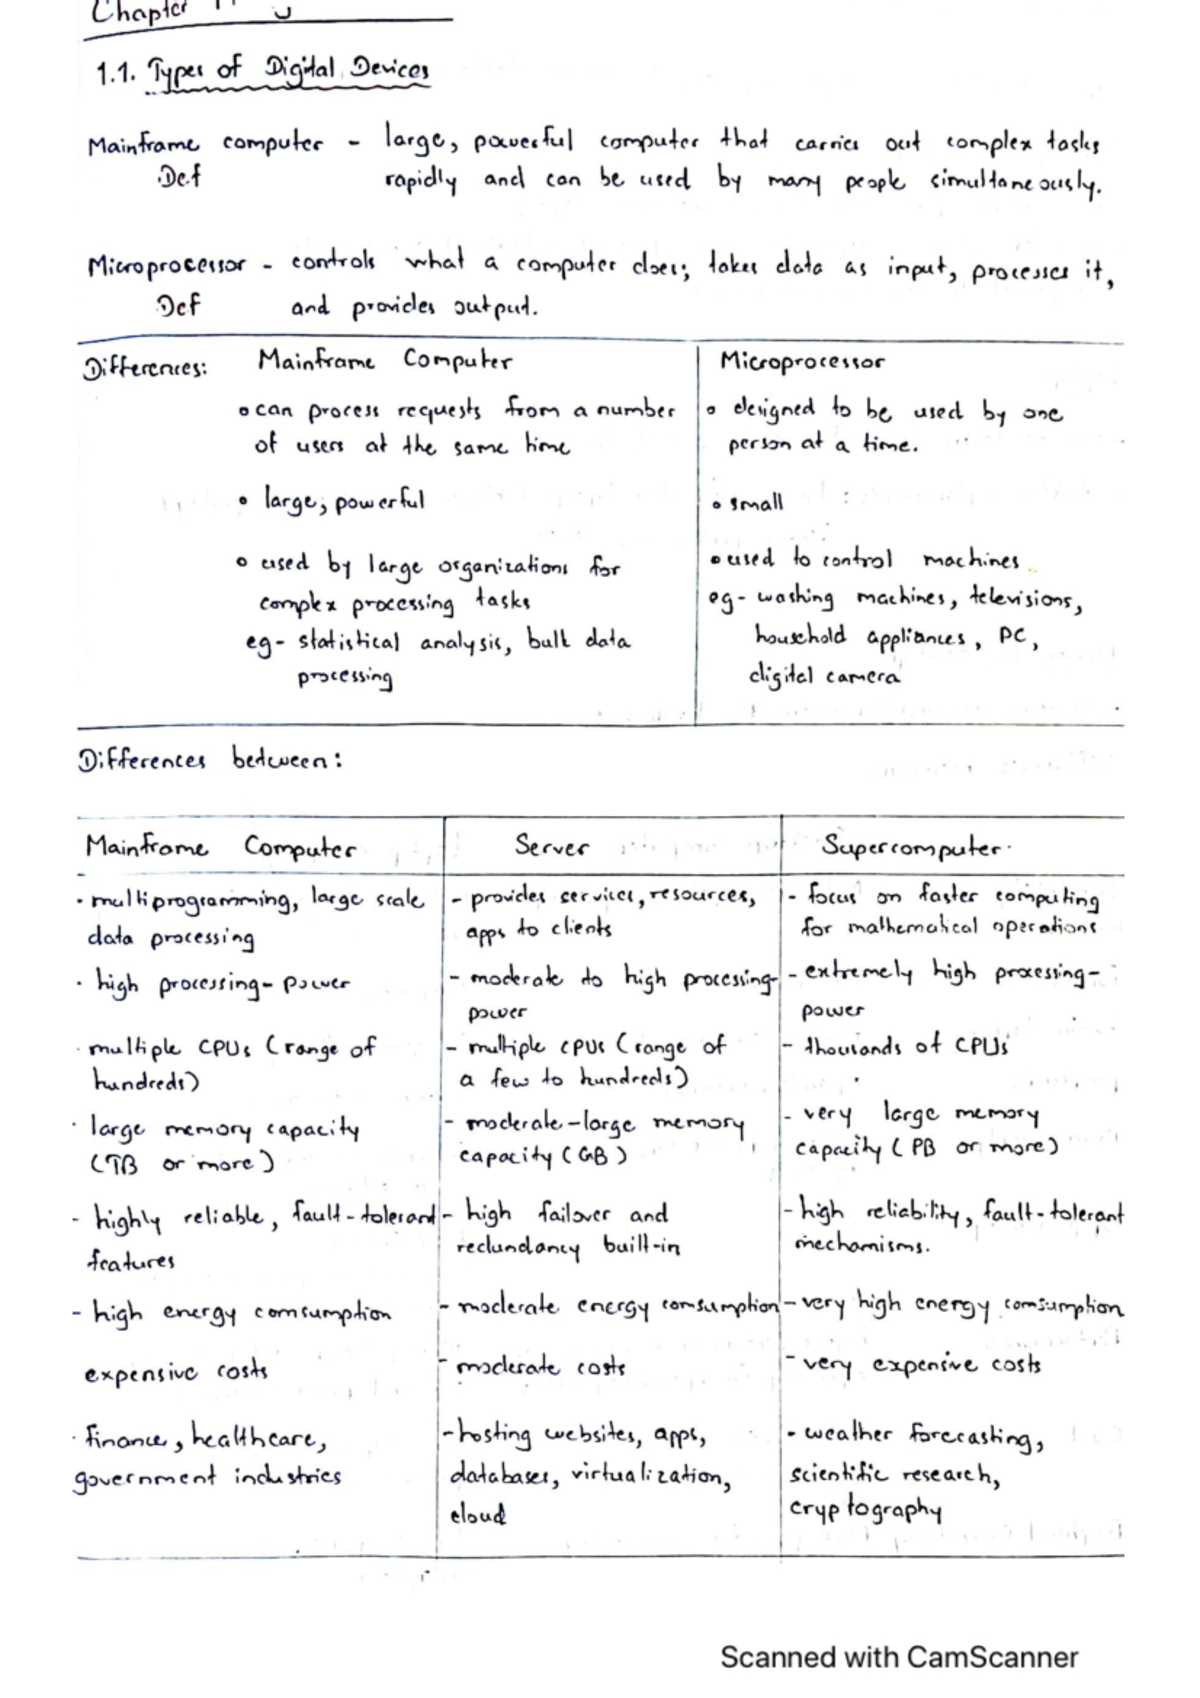 Chapter
1.1. Types of Digital Devices
Mainframe computer - large, powerful computer that carries out complex tasks
Def rapidly and can be used by many people simultaneously.
Microprocessor - controls what a computer does; takes data as input, processes it,
Def and provides output.
Differences: Mainframe Computer
can process requests from a number
of users at the same time
large, powerful
used by large organizations for
complex processing tasks
eg- statistical analysis, bulk data
processing
Microprocessor
designed to be used by one
person at a time.
small
used to control machines
eg- washing machines, televisions,
household appliances, PC,
digital camera
Differences between:
Mainframe Computer
· multiprogramming, large scale
data processing
· high processing-power
· multiple CPUs (range of
hundreds)
· large memory capacity
(TB or more)
- highly reliable, fault-tolerant
features
- high energy comsumption
expensive costs
· finance, healthcare,
government industries
Server
- provides services, resources,
apps to clients
- moderate to high processing-
power
- multiple CPUs (range of
a few to hundreds)
- moderate-large memory
capacity (GB)
- high failover and
redundancy built-in
- moderate energy comsumption
- moderate costs
- hosting websites, apps,
databases, virtualization,
cloud
Supercomputer
- focus on faster computing
for mathematical operations
- extremely high processing-
power
- thousands of CPUs
- very large memory
capacity (PB or more)
- high reliability, fault-tolerant
mechamisms.
- very high energy comsumption
- very expensive costs
- weather forecasting,
scientific research,
cryptography
Scanned with CamScanner